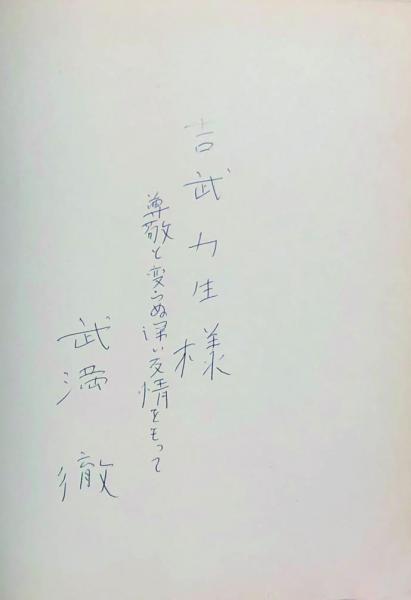 吉武力生様
尊敬と変らぬ深い友情をもって
武満徹